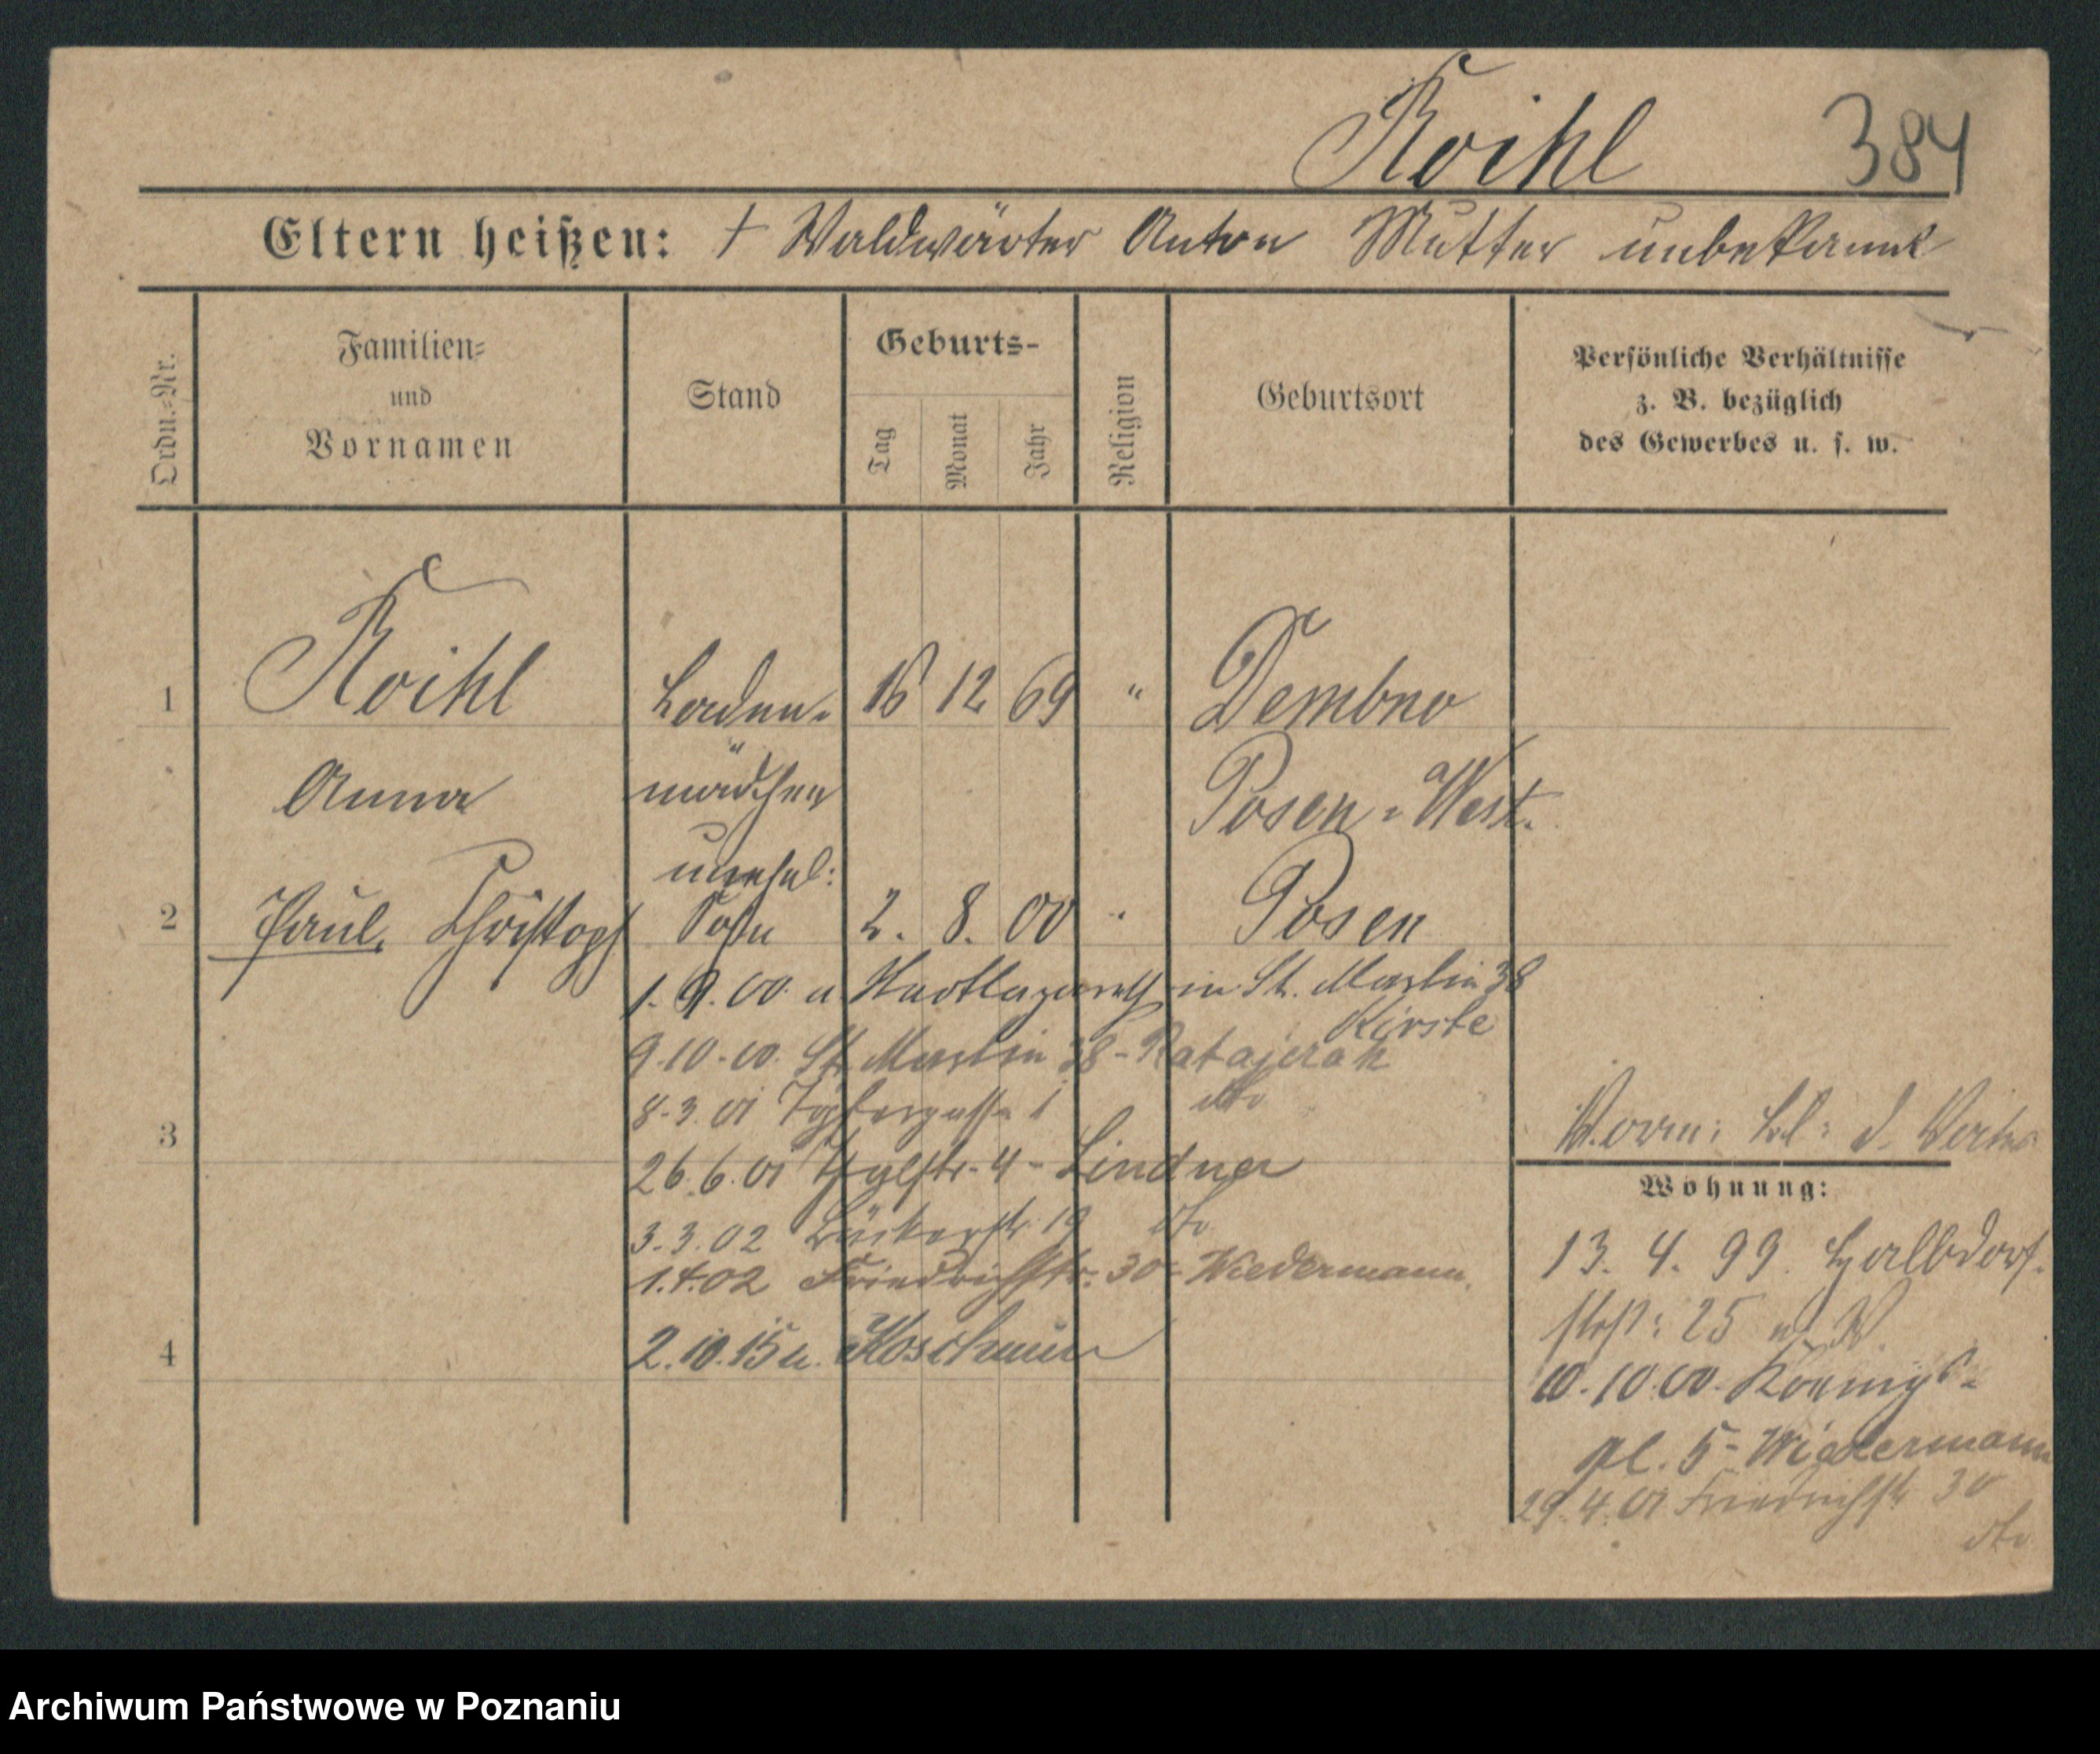 Roihl 384
Eltern heißen: + Waldwärter Anton Mutter unbekannt
Ordn.=Nr.
Familien=
und
Vornamen
Stand
Geburts-
Tag
Monat
Jahr
Religion
Geburtsort
Persönliche Verhältnisse
z. B. bezüglich
des Gewerbes u. s. w.
1 Roihl Laden= 16 12 69 " Dembno
Anna mädchen Posen=West.
unehel:
2 Paul, Christoph Sohn 2. 8. 00 " Posen
1. 9. 00. a in St. Martin 38
Kirste
9.10.00. St. Martin 38 - Ratajczak
8.3.01 Töpfergasse 1 dto
3
26.6.01 4 - Lindner
3.3.02 Bäckerstr. 19 dto
1.4.02 Friedrichstr. 30 - Wiedermann.
4
2.10.15 n. Koschmin
Wohnung:
13. 4. 99. Halbdorf-
25
10.10.00. Königs=
pl. 5 - Wiedermann
29.4.01 Friedrichstr 30
dto
Archiwum Państwowe w Poznaniu